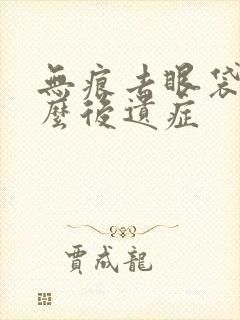 無痕去眼袋
麼後遺症
賈成龍